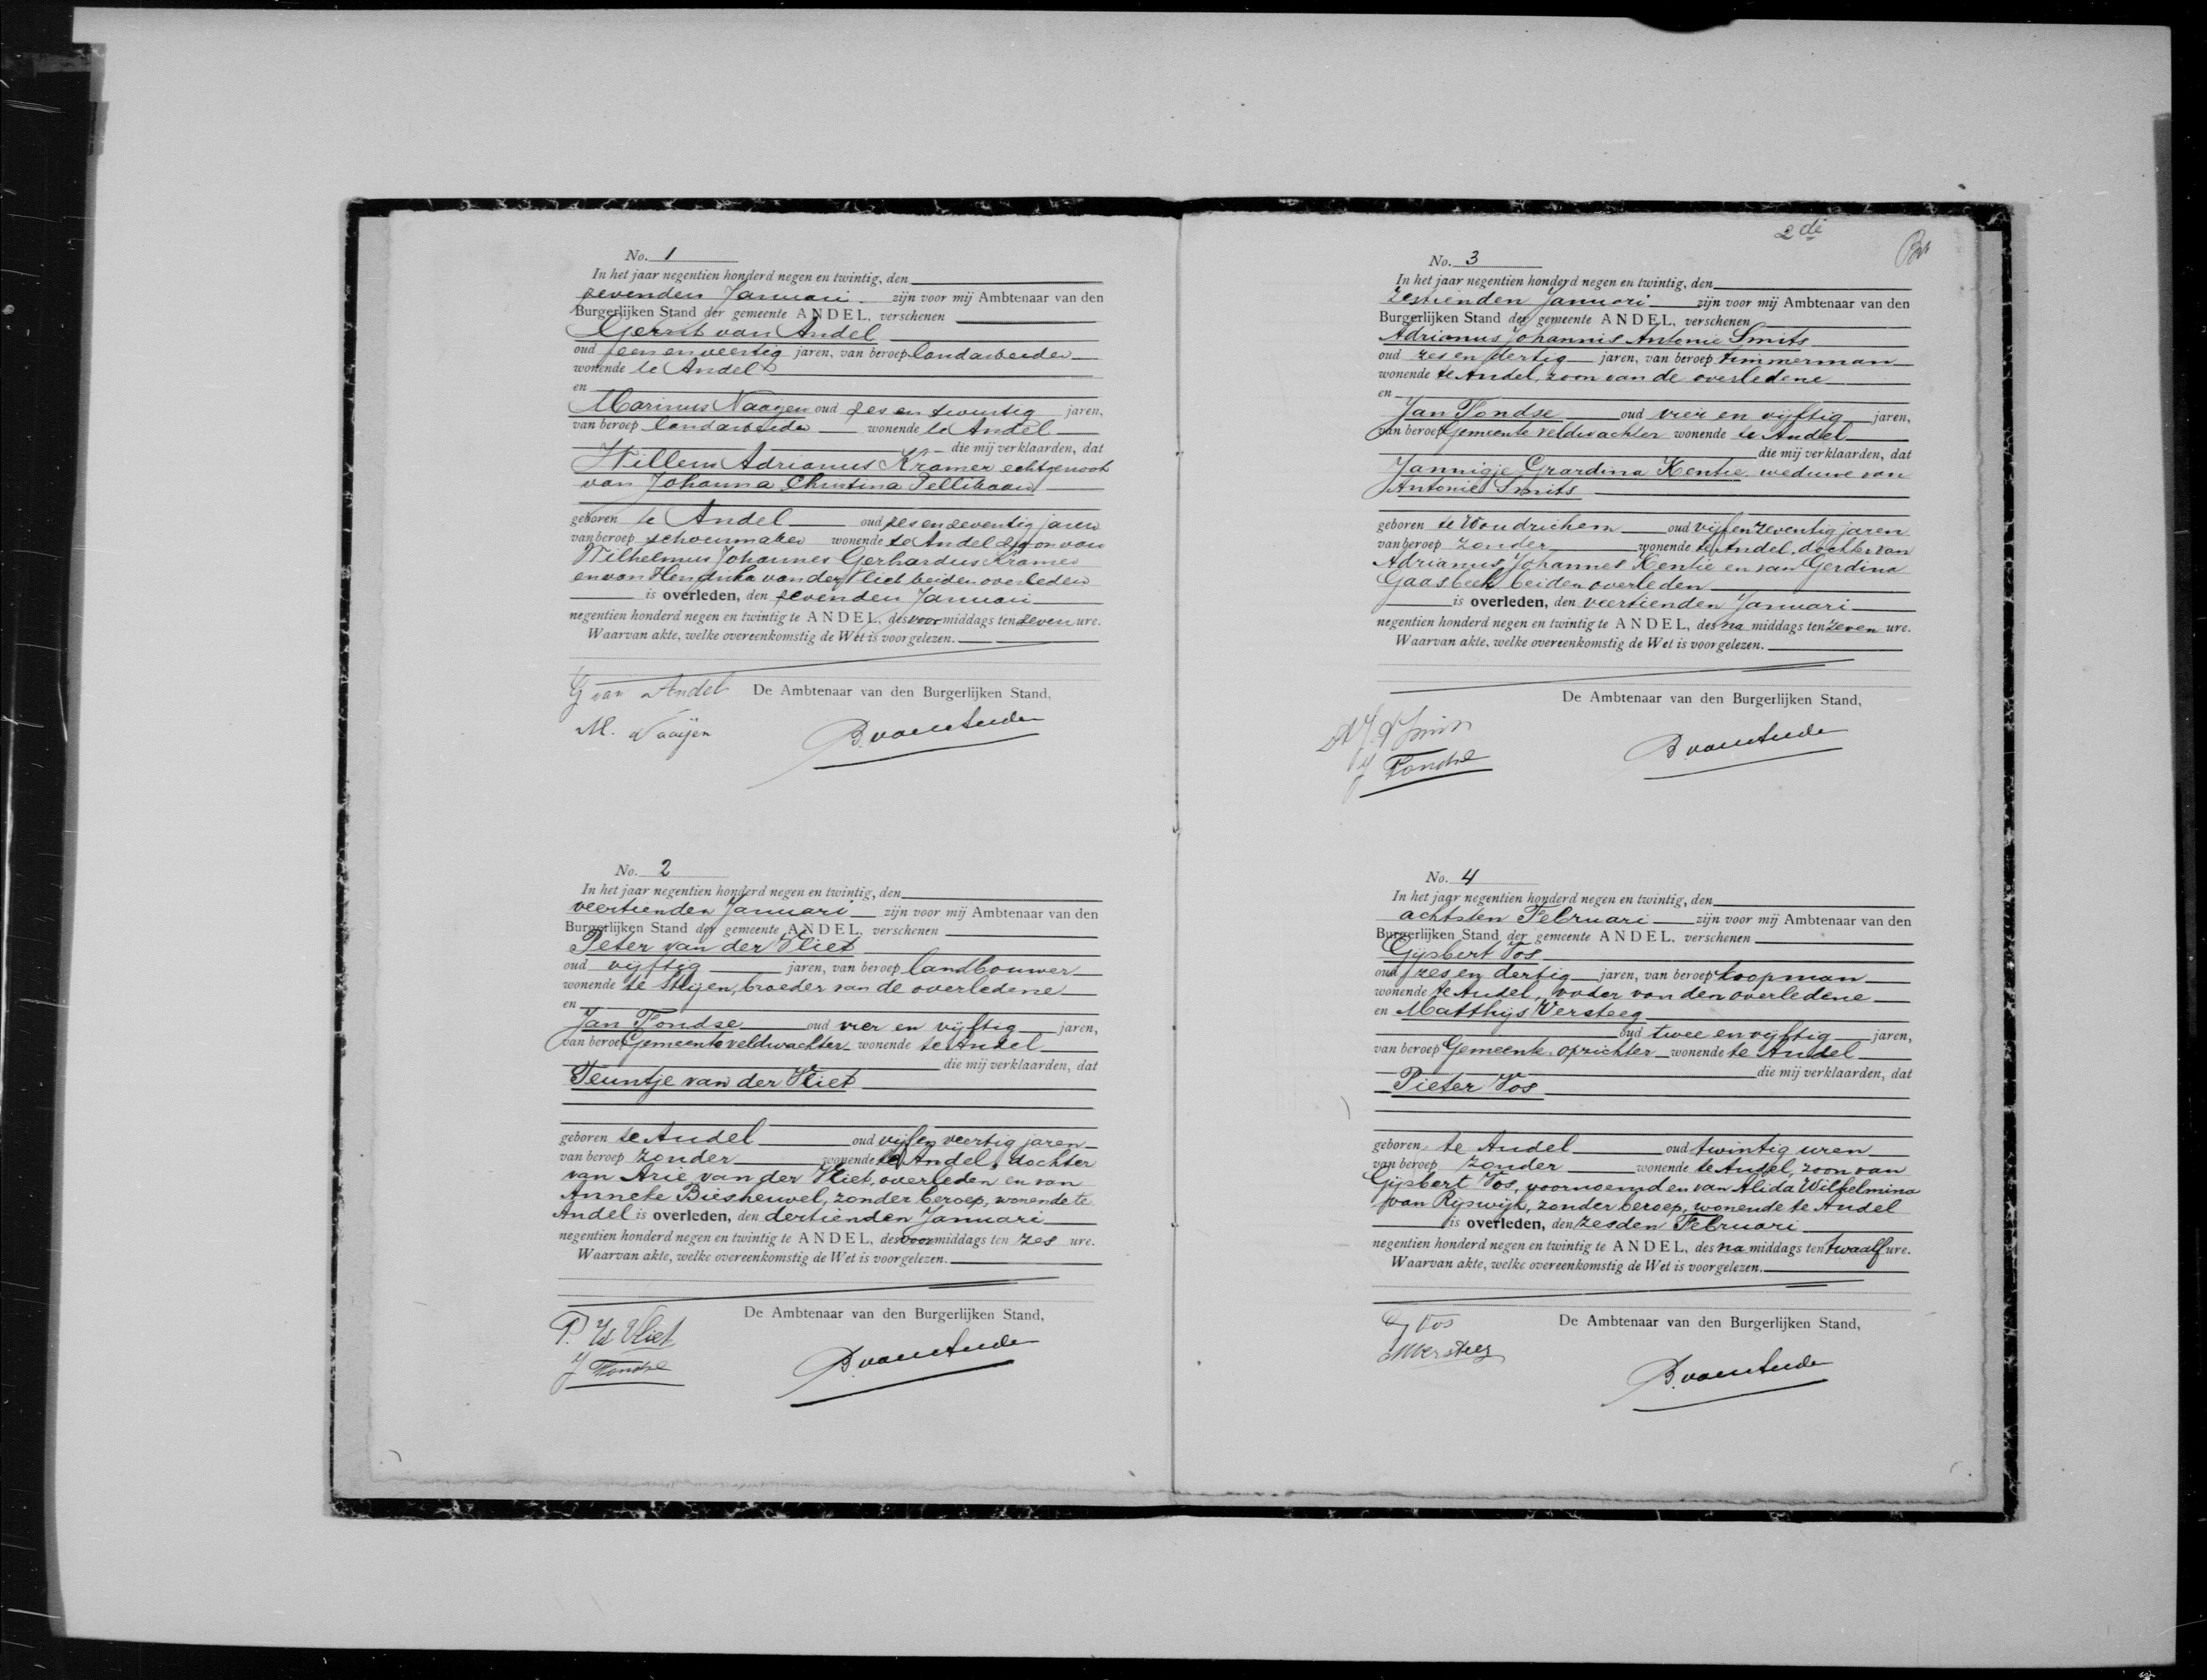 No. 1
In het jaar negentien honderd negen en twintig, den
zevenden Januari zijn voor mij Ambtenaar van den
Burgerlijken Stand der gemeente ANDEL, verschenen
Gerrit van Andel
oud een en veertig jaren, van beroep landarbeider
wonende te Andel
en
Marinus Naaijen oud zes en twintig jaren,
van beroep landarbeider wonende te Andel
die mij verklaarden, dat
Willem Adrianus Kramer echtgenoot
van Johanna Christina Pellikaan
geboren te Andel oud zes en zeventig jaren
van beroep schoenmaker wonende te Andel zoon van
Wilhelmus Johannes Gerhardus Kramer
en van Hendrika van der Vliet beiden overleden
is overleden, den zevenden Januari
negentien honderd negen en twintig te ANDEL, des voor middags ten zeven ure.
Waarvan akte, welke overeenkomstig de Wet is voorgelezen.
G van Andel De Ambtenaar van den Burgerlijken Stand,
M. Naaijen
No. 2
In het jaar negentien honderd negen en twintig, den
veertienden Januari zijn voor mij Ambtenaar van den
Burgerlijken Stand der gemeente ANDEL, verschenen
Peter van der Vliet
oud vijftig jaren, van beroep landbouwer
wonende te Strijen, broeder van de overledene
en
Jan Fondse oud vier en vijftig jaren,
van beroep Gemeente veldwachter wonende te Andel
die mij verklaarden, dat
Teuntje van der Vliet
geboren te Andel oud vijf en veertig jaren
van beroep zonder wonende te Andel, dochter
van Arie van der Vliet, overleden en van
Anneke Biesheuvel, zonder beroep, wonende te
Andel is overleden, den dertienden Januari
negentien honderd negen en twintig te ANDEL, des voor middags ten zes ure.
Waarvan akte, welke overeenkomstig de Wet is voorgelezen.
De Ambtenaar van den Burgerlijken Stand,
P. Vliet
J Fondse
2de
No. 3
In het jaar negentien honderd negen en twintig, den
zestienden Januari zijn voor mij Ambtenaar van den
Burgerlijken Stand der gemeente ANDEL, verschenen
Adrianus Johannis Antonie Smits
oud zes en dertig jaren, van beroep timmerman
wonende te Andel, zoon van de overledene
en
Jan Fondse oud vier en vijftig jaren,
van beroep Gemeente veldwachter wonende te Andel
die mij verklaarden, dat
Jannigje Grardina Kentie weduwe van
Antonie Smits
geboren te Woudrichem oud vijf en zeventig jaren
van beroep zonder wonende te Andel, dochter van
Adrianus Johannes Kentie en van Gerdina
Gaasbeek beiden overleden
is overleden, den veertienden Januari
negentien honderd negen en twintig te ANDEL, des na middags ten zeven ure.
Waarvan akte, welke overeenkomstig de Wet is voorgelezen.
De Ambtenaar van den Burgerlijken Stand,
A J A Smits
J Fondse
No. 4
In het jaar negentien honderd negen en twintig, den
achtsten Februari zijn voor mij Ambtenaar van den
Burgerlijken Stand der gemeente ANDEL, verschenen
Gijsbert Vos
oud zes en dertig jaren, van beroep koopman
wonende te Andel, vader van den overledene
en Matthijs Versteeg
oud twee en vijftig jaren,
van beroep Gemeente-opzichter wonende te Andel
die mij verklaarden, dat
Pieter Vos
geboren te Andel oud twintig uren
van beroep zonder wonende te Andel, zoon van
Gijsbert Vos, voornoemd en van Alida Wilhelmina
van Rijswijk, zonder beroep, wonende te Andel
is overleden, den zesden Februari
negentien honderd negen en twintig te ANDEL, des na middags ten twaalf ure.
Waarvan akte, welke overeenkomstig de Wet is voorgelezen.
G Vos De Ambtenaar van den Burgerlijken Stand,
MVersteeg